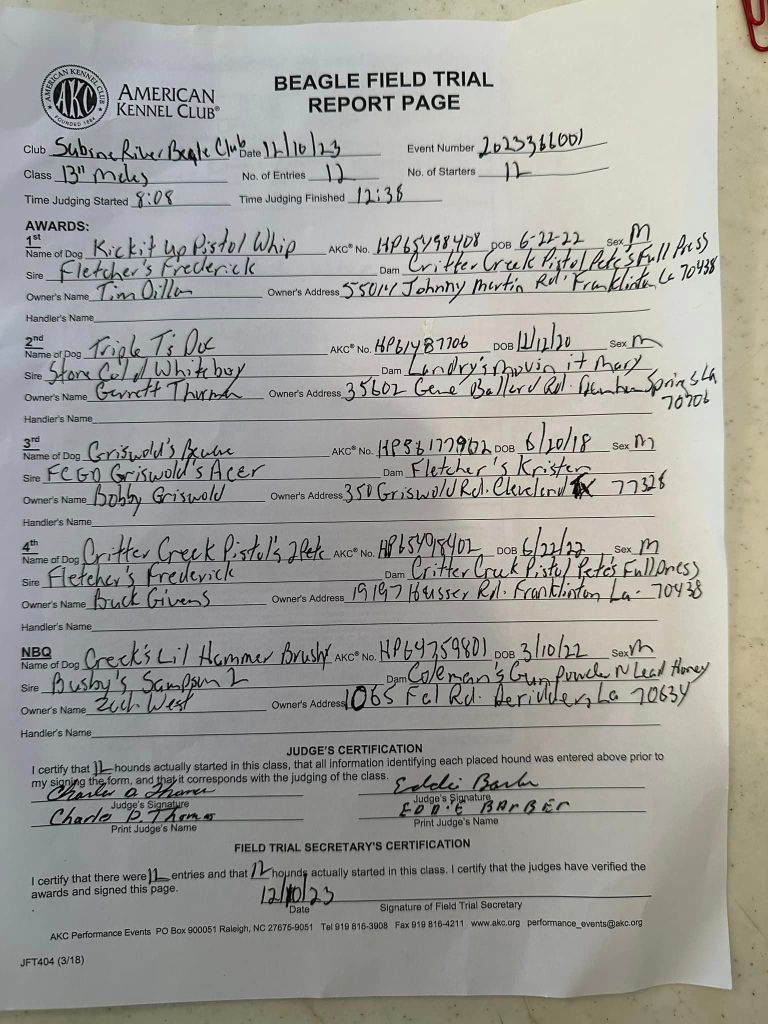 AMERICAN KENNEL CLUB
AKC
FOUNDED 1884
AMERICAN
KENNEL CLUB®
BEAGLE FIELD TRIAL
REPORT PAGE
Club Sabine River Beagle Club Date 12/10/23 Event Number 2023366001
Class 13" Males No. of Entries 12 No. of Starters 12
Time Judging Started 8:08 Time Judging Finished 12:38
AWARDS:
1st
Name of Dog Kickit Up Pistol Whip AKC® No. HP65498408 DOB 6-22-22 Sex M
Sire Fletcher's Frederick Dam Critter Creek Pistol Pete's Full Press
Owner's Name Tim Dillon Owner's Address Johnny Martin Rd. Franklinton La 70438
Handler's Name
2nd
Name of Dog Triple T's Doc AKC® No. HP61487706 DOB 11/12/20 Sex M
Sire Stone Cold Whiteboy Dam Landry's Movin it Mary
Owner's Name Garrett Owner's Address 35602 Gene Ballard Rd. Denham Springs La
70706
Handler's Name
3rd
Name of Dog Griswold's AKC® No. DOB 6/20/18 Sex M
Sire FCGD Griswold's Acer Dam Fletcher's Kristen
Owner's Name Bobby Griswold Owner's Address 350 Griswold Rd. Cleveland TX 77328
Handler's Name
4th
Name of Dog Critter Creek Pistol's 2Pete AKC® No. DOB 6/22/22 Sex M
Sire Fletcher's Frederick Dam Critter Creek Pistol Pete's Full Press
Owner's Name Buck Givens Owner's Address 19197 Rd. Franklinton La. 70438
Handler's Name
NBQ
Name of Dog Creek's Lil Hammer AKC® No. HP64759801 DOB 3/10/22 Sex M
Sire Busby's Sampson 2 Dam Coleman's Gunpowder N Lead Honey
Owner's Name Zach West Owner's Address 1065 Rd. Deridder, La 70634
Handler's Name
JUDGE'S CERTIFICATION
I certify that 12 hounds actually started in this class, that all information identifying each placed hound was entered above prior to
my signing the form, and that it corresponds with the judging of the class.
Charles D. Thomas Eddie Barber
Judge's Signature Judge's Signature
Charles D. Thomas EDDIE BARBER
Print Judge's Name Print Judge's Name
FIELD TRIAL SECRETARY'S CERTIFICATION
I certify that there were 12 entries and that 12 hounds actually started in this class. I certify that the judges have verified the
awards and signed this page.
12/10/23
Date Signature of Field Trial Secretary
AKC Performance Events PO Box 900051 Raleigh, NC 27675-9051 Tel 919 816-3908 Fax 919 816-4211 www.akc.org performance_events@akc.org
JFT404 (3/18)